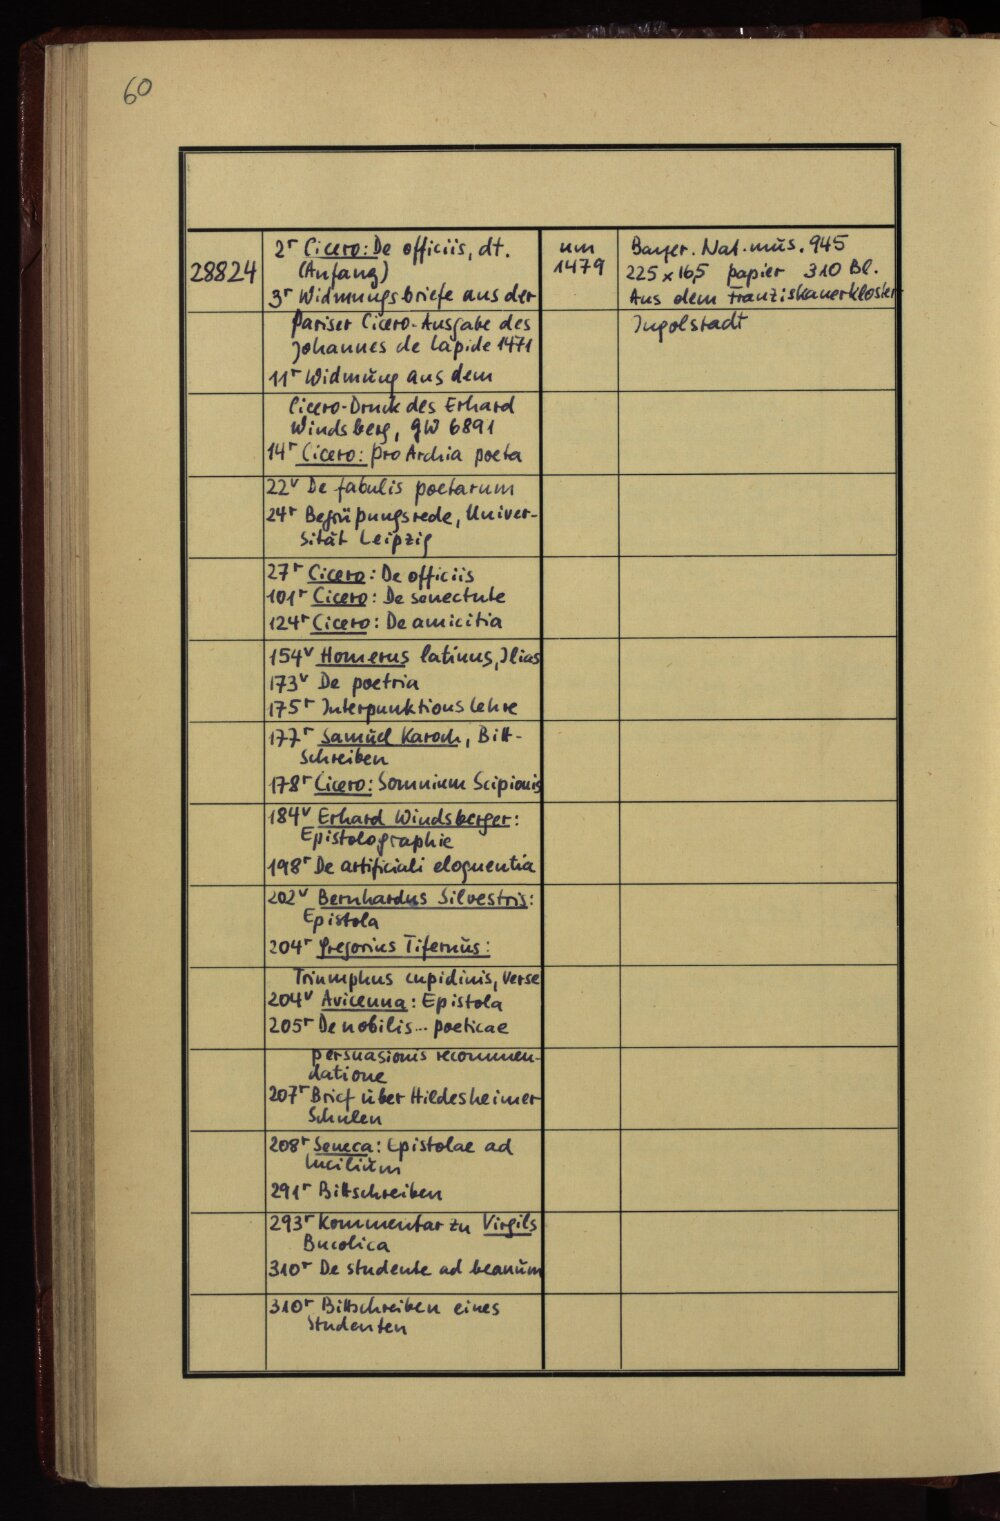 60
28824
2r Cicero: De officiis, dt.
(Anfang)
3r Widmungsbriefe aus der
Pariser Cicero-Ausgabe des
Johannes de Lapide 1471
11r Widmung aus dem
Cicero-Druck des Erhard
Windsberg, GW 6891
14r Cicero: pro Archia poeta
22v De fabulis poetarum
24r Begrüßungsrede, Univer-
sität Leipzig
27r Cicero: De officiis
101r Cicero: De senectute
124r Cicero: De amicitia
154v Homerus latinus, Ilias
173v De poetria
175r Interpunktionslehre
177r Samuel Karoch, Bitt-
schreiben
178r Cicero: Somnium Scipionis
184v Erhard Windsberger:
Epistolographie
198r De artificiali eloquentia
202v Bernhardus Silvestris:
Epistola
204r Gregorius Tifernus:
Triumphus cupidinis, Verse
204v Avicenna: Epistola
205r De nobilis... poeticae
persuasionis recommen-
datione
207r Brief über Hildesheimer
Schulen
208r Seneca: Epistolae ad
Lucilium
291r Bittschreiben
293r Kommentar zu Virgils
Bucolica
310r De studente ad beanum
310r Bittschreiben eines
Studenten
um
1479
Bayer. Nat.mus. 945
225 x 16,5 papier 310 Bl.
Aus dem Franziskanerkloster
Ingolstadt